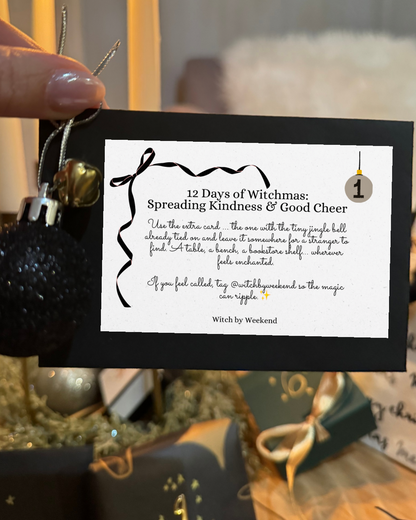 12 Days of Witchmas:
Spreading Kindness & Good Cheer
1
Use the extra card ... the one with the tiny jingle bell
already tied on and leave it somewhere for a stranger to
find. A table, a bench, a bookstore shelf... wherever
feels enchanted.
If you feel called, tag @witchbyweekend so the magic
can ripple. ✨
Witch by Weekend